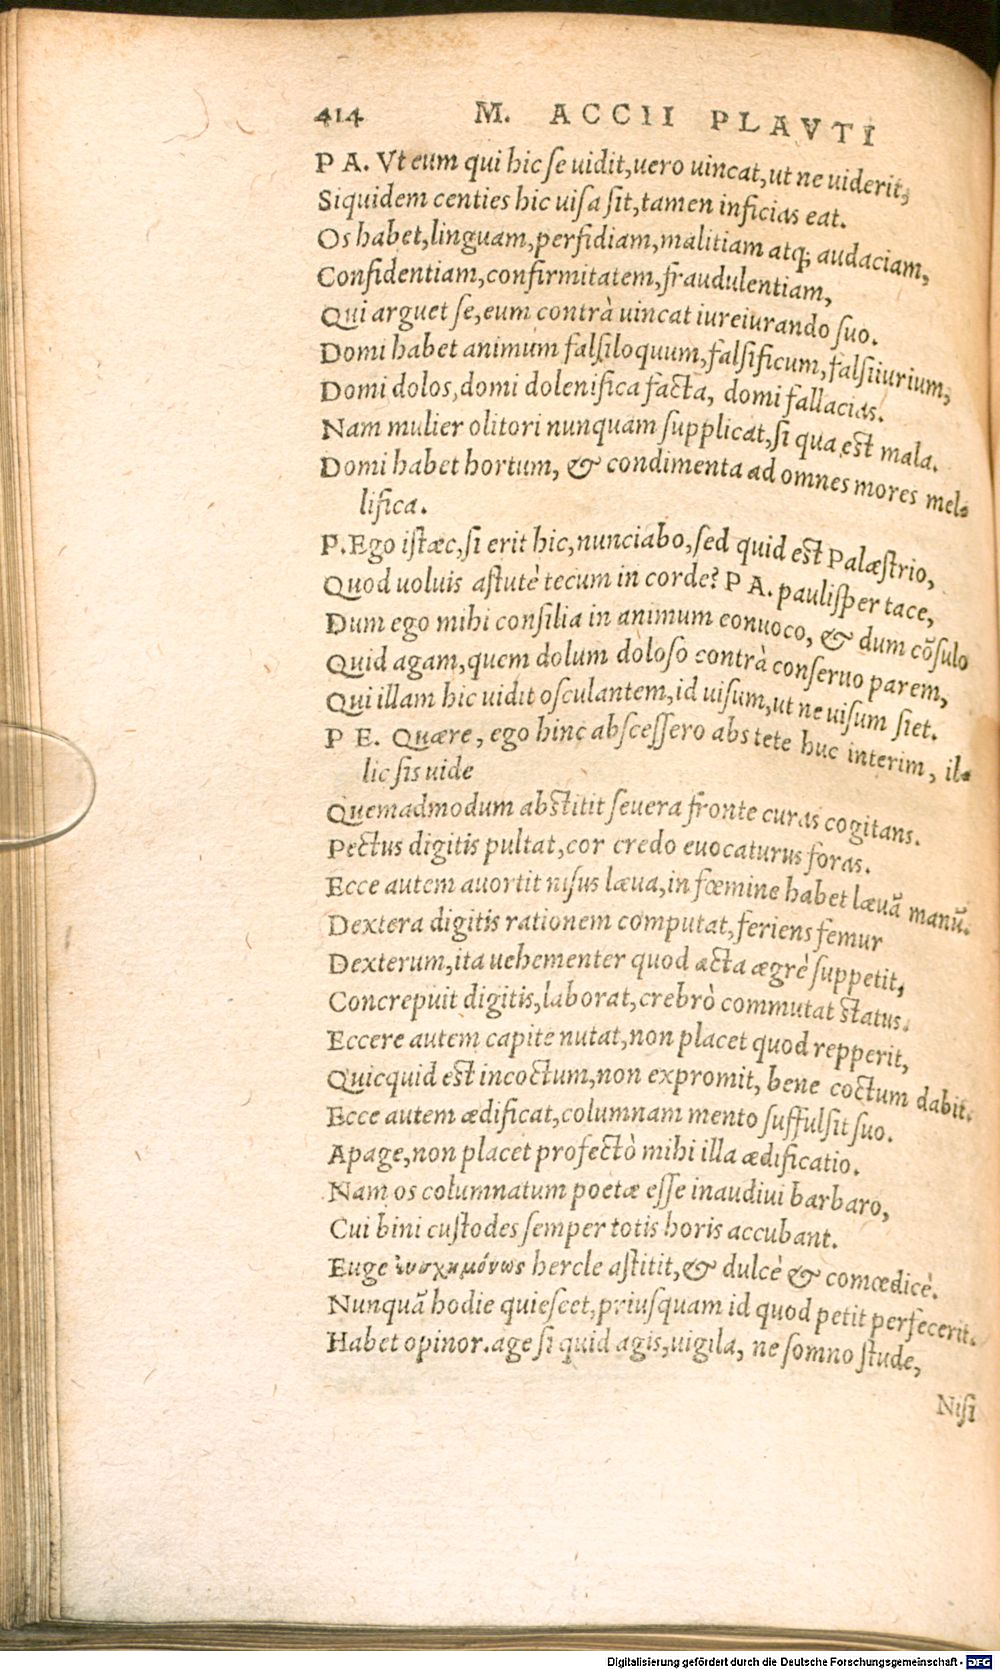 414 M. ACCII PLAVTI
P A. Vt eum qui hic se uidit, uero uincat, ut ne uiderit,
Siquidem centies hic uisa sit, tamen inficias eat.
Os habet, linguam, perfidiam, malitiam atq; audaciam,
Confidentiam, confirmitatem, fraudulentiam,
Qui arguet se, eum contrà uincat iureiurando suo.
Domi habet animum falsiloquum, falsificum, falsiiurium,
Domi dolos, domi dolenifica facta, domi fallacias.
Nam mulier olitori nunquam supplicat, si qua est mala.
Domi habet hortum, & condimenta ad omnes mores mel-
lifica.
P. Ego istæc, si erit hic, nunciabo, sed quid est Palæstrio,
Quod uoluis astutè tecum in corde? P A. paulisper tace,
Dum ego mihi consilia in animum conuoco, & dum cõsulo
Quid agam, quem dolum doloso contrà conseruo parem,
Qui illam hic uidit osculantem, id uisum, ut ne uisum siet.
P E. Quære, ego hinc abscessero abs te te huc interim, il-
lic sis uide
Quemadmodum abstitit seuera fronte curas cogitans.
Pectus digitis pultat, cor credo euocaturus foras.
Ecce autem auortit nisus læua, in fœmine habet læuã manũ.
Dextera digitis rationem computat, feriens femur
Dexterum, ita uehementer quod acta ægrè suppetit,
Concrepuit digitis, laborat, crebrò commutat status.
Eccere autem capite nutat, non placet quod repperit,
Quicquid est incoctum, non expromit, bene coctum dabit.
Ecce autem ædificat, columnam mento suffulsit suo.
Apage, non placet profectò mihi illa ædificatio.
Nam os columnatum poetæ esse inaudiui barbaro,
Cui bini custodes semper totis horis accubant.
Euge hercle astitit, & dulcè & comœdicè.
Nunquã hodie quiescet, priusquam id quod petit perfecerit.
Habet opinor. age si quid agis, uigila, ne somno stude,
Nisi
Digitalisierung gefördert durch die Deutsche Forschungsgemeinschaft - DFG